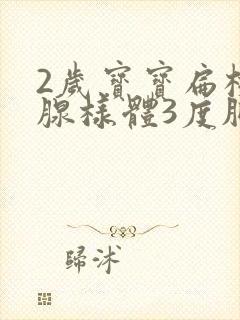 2歲寶寶扁
腺樣體3度
歸沭